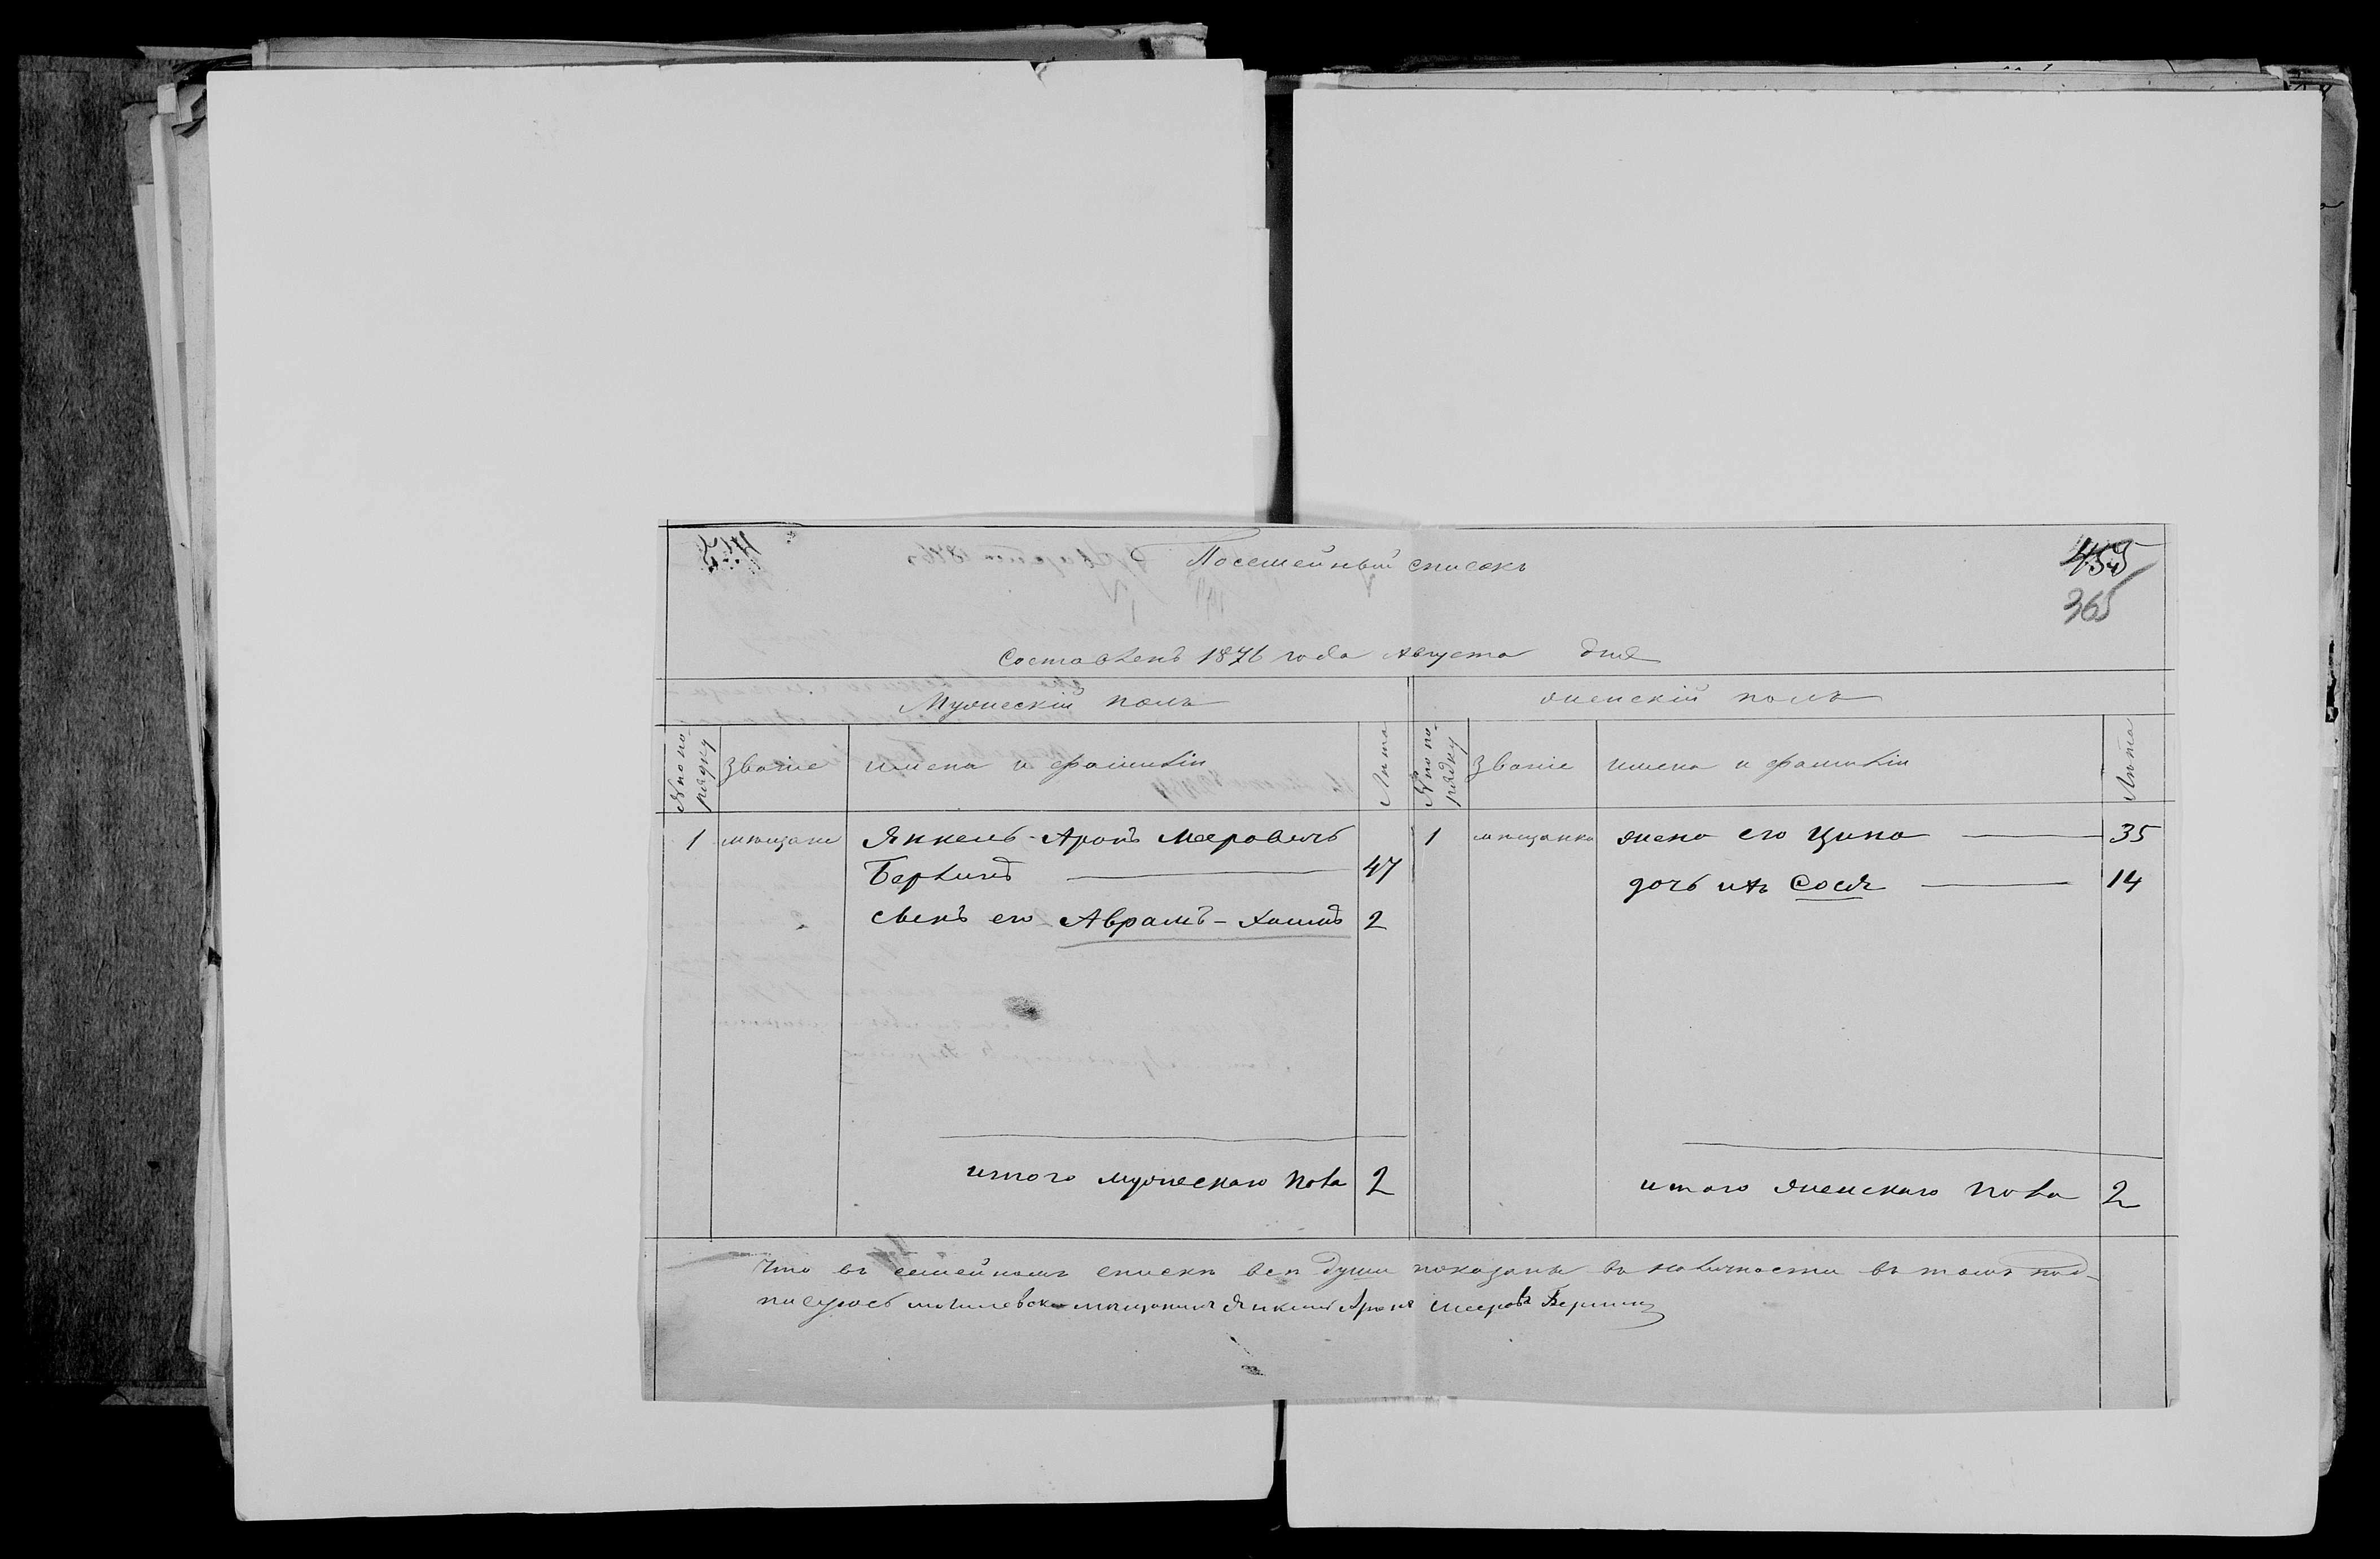 455
365
Посемейный списокъ
Составленъ 1876 года Августа дня
Мужескій полъ
женскій полъ
№ по по
рядку
Званіе
имена и фамиліи
Лѣта
№ по по
рядку
Званіе
имена и фамиліи
Лѣта
1 мѣщане Янкель-Аронъ Мееровичъ
Берлинъ 47
сынъ его Аврамъ-Хаимъ 2
1 мѣщанка жена его Ципа 35
дочь ихъ Сося 14
итого мужескаго пола 2
итого женскаго пола 2
Что въ семейномъ спискѣ всѣ души показаны въ наличности въ томъ под-
писуюсь могилевски мѣщанинъ Янкель Аронъ Мееровъ Берлинъ